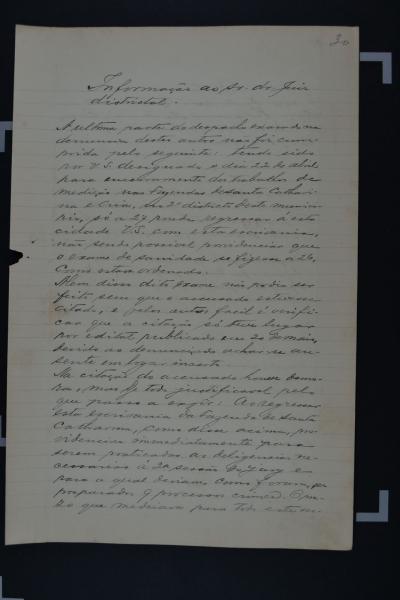 30
Informação ao Sr. dr. Juiz
districtal.
A ultima parte do despacho exarado na
denuncia destes autos não foi cum-
prida pelo seguinte: tendo sido
por V.S. designado o dia 22 de abril
para encerramento dos trabalhos de
medição nas fazendas de Santa Cathari-
na e Cria, no 2º districto deste munici-
pio, só a 27 poude regressar á esta
cidade V.S. com esta escrivania,
não sendo possivel providenciar que
o exame de sanidade se fizesse a 26,
como estava ordenado.
Alem disso dito exame não podia ser
feito sem que o accusado estivesse
citado, e pelos autos facil é verifi-
car que a citação só teve lugar
por edital publicado em 20 de maio,
devido ao denunciado achar-se au-
sente em logar incerto.
Na citação do accusado houve demo-
ra, mas foi toda justificavel pelo
que passo a expôr: Ao regressar
esta escrivania da fazenda de Santa
Catharina, como disse acima, pro-
videnciou immediatamente para
serem praticadas as deligencias ne-
cessarias á 2ª sessão do Jury e
para a qual deviam, como foram, ser
preparados 9 processos crimes. O pra-
zo que mediava para tudo estar